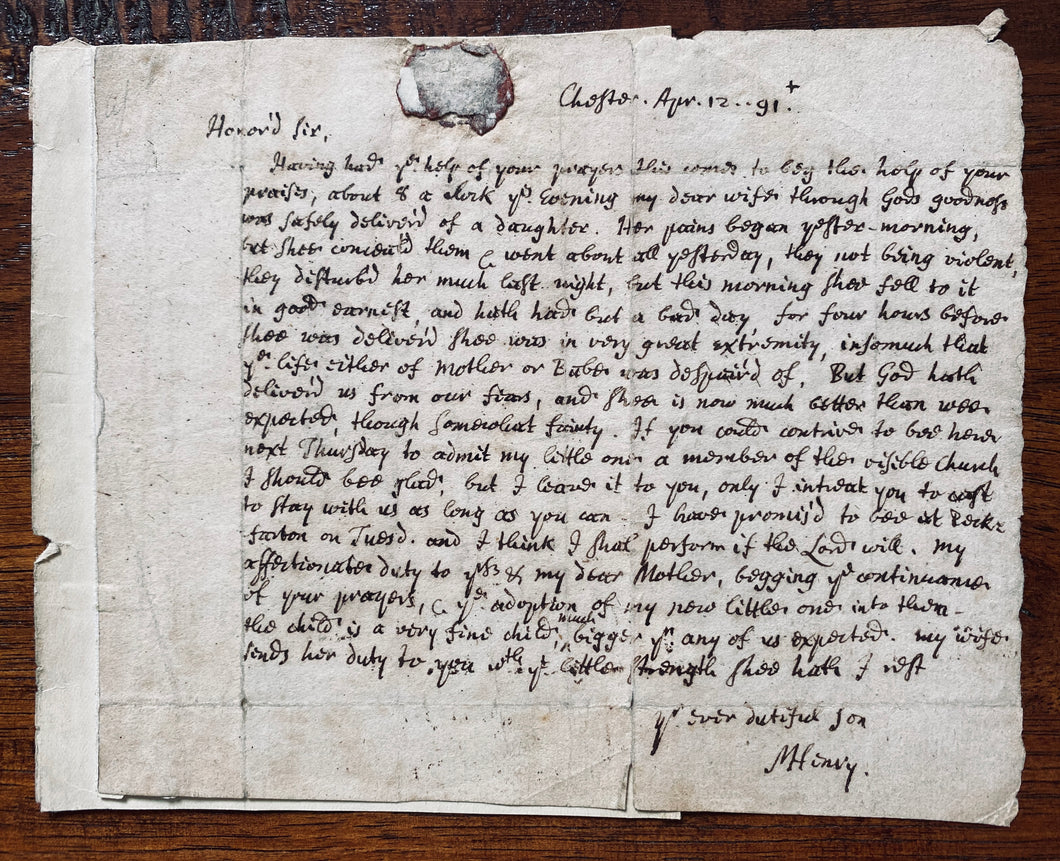 Chester. Apr. 12.. 91.
Honor'd Sir,
Having had ye help of your prayers this comes to beg the help of your
praises, about 8 a clock ys Evening my dear wife through Gods goodness
was safely deliver'd of a daughter. Her pains began yester-morning,
but shee conceal'd them & went about all yesterday, they not being violent,
they disturb'd her much last night, but this morning shee fell to it
in good earnest, and hath had but a bad day, for four hours before
shee was deliver'd shee was in very great extremity, insomuch that
ye life either of Mother or Babe was despair'd of, But God hath
deliver'd us from our fears, and shee is now much better than wee
expected, though somewhat fainty. If you could contrive to bee here
next Thursday to admit my little one a member of the visible Church
I should bee glad, but I leave it to you, only I intreat you to
to stay with us as long as you can - I have promis'd to bee at Peck=
farton on Tuesd. and I think I shal perform if the Lord will. my
affectionate duty to & my dear Mother, begging ye continuance
of your prayers, & ye adoption of my new little one into them -
the child is a very fine child, much bigger yn any of us expected. my wife
sends her duty to you wth ye little strength shee hath I rest
yr ever dutiful son
MHenry.